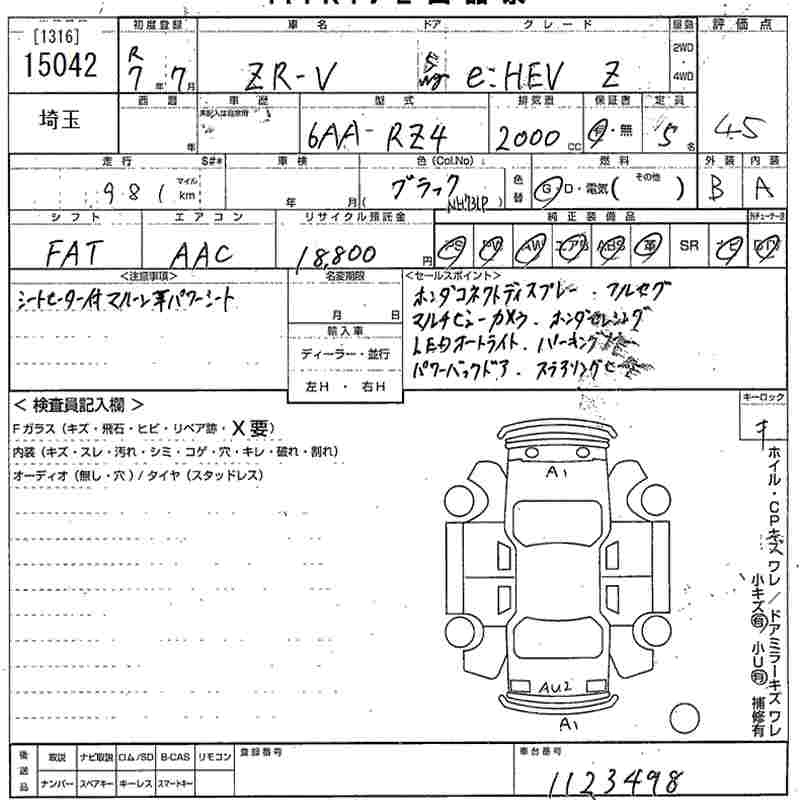 [1316]
15042
初度登録 車名 ドア グレード 駆動 評価点
R7年7月 ZR-V 5 e:HEV Z 2WD・4WD
埼玉
西暦 車歴 型式 排気量 保証書 定員
年 6AA-RZ4 2000cc 有・無 5名 4.5
走行 S#* 車検 色(Col.No) 色替 燃料 外装 内装
981 マイル km 年 月 ブラック (NH731P) G・D・電気 (その他) B A
シフト エアコン リサイクル預託金 純正装備品
FAT AAC 18,800円 PS PW AW エアB ABS 革 SR ナビ
<注意事項>
シートヒーター付 マルーン革パワーシート
名変期限
月 日
輸入車
ディーラー・並行
左H ・ 右H
<セールスポイント>
ホンダコネクトディスプレー・フルセグ
マルチビューカメラ・ホンダセンシング
LEDオートライト・パーキング
パワーバックドア・ステアリングヒーター
< 検査員記入欄 >
Fガラス (キズ・飛石・ヒビ・リペア跡・X要)
内装 (キズ・スレ・汚れ・シミ・コゲ・穴・キレ・破れ・割れ)
オーディオ (無し・穴) / タイヤ (スタッドレス)
キーロック
キ
A1
AU2
A1
ホイル・CPキズ ワレ / ドアミラーキズ ワレ
小キズ有 小U有 補修有
後送品 取説 ナビ取説 ロム/SD B-CAS リモコン
ナンバー スペアキー キーレス スマートキー
登録番号
車台番号
1123498